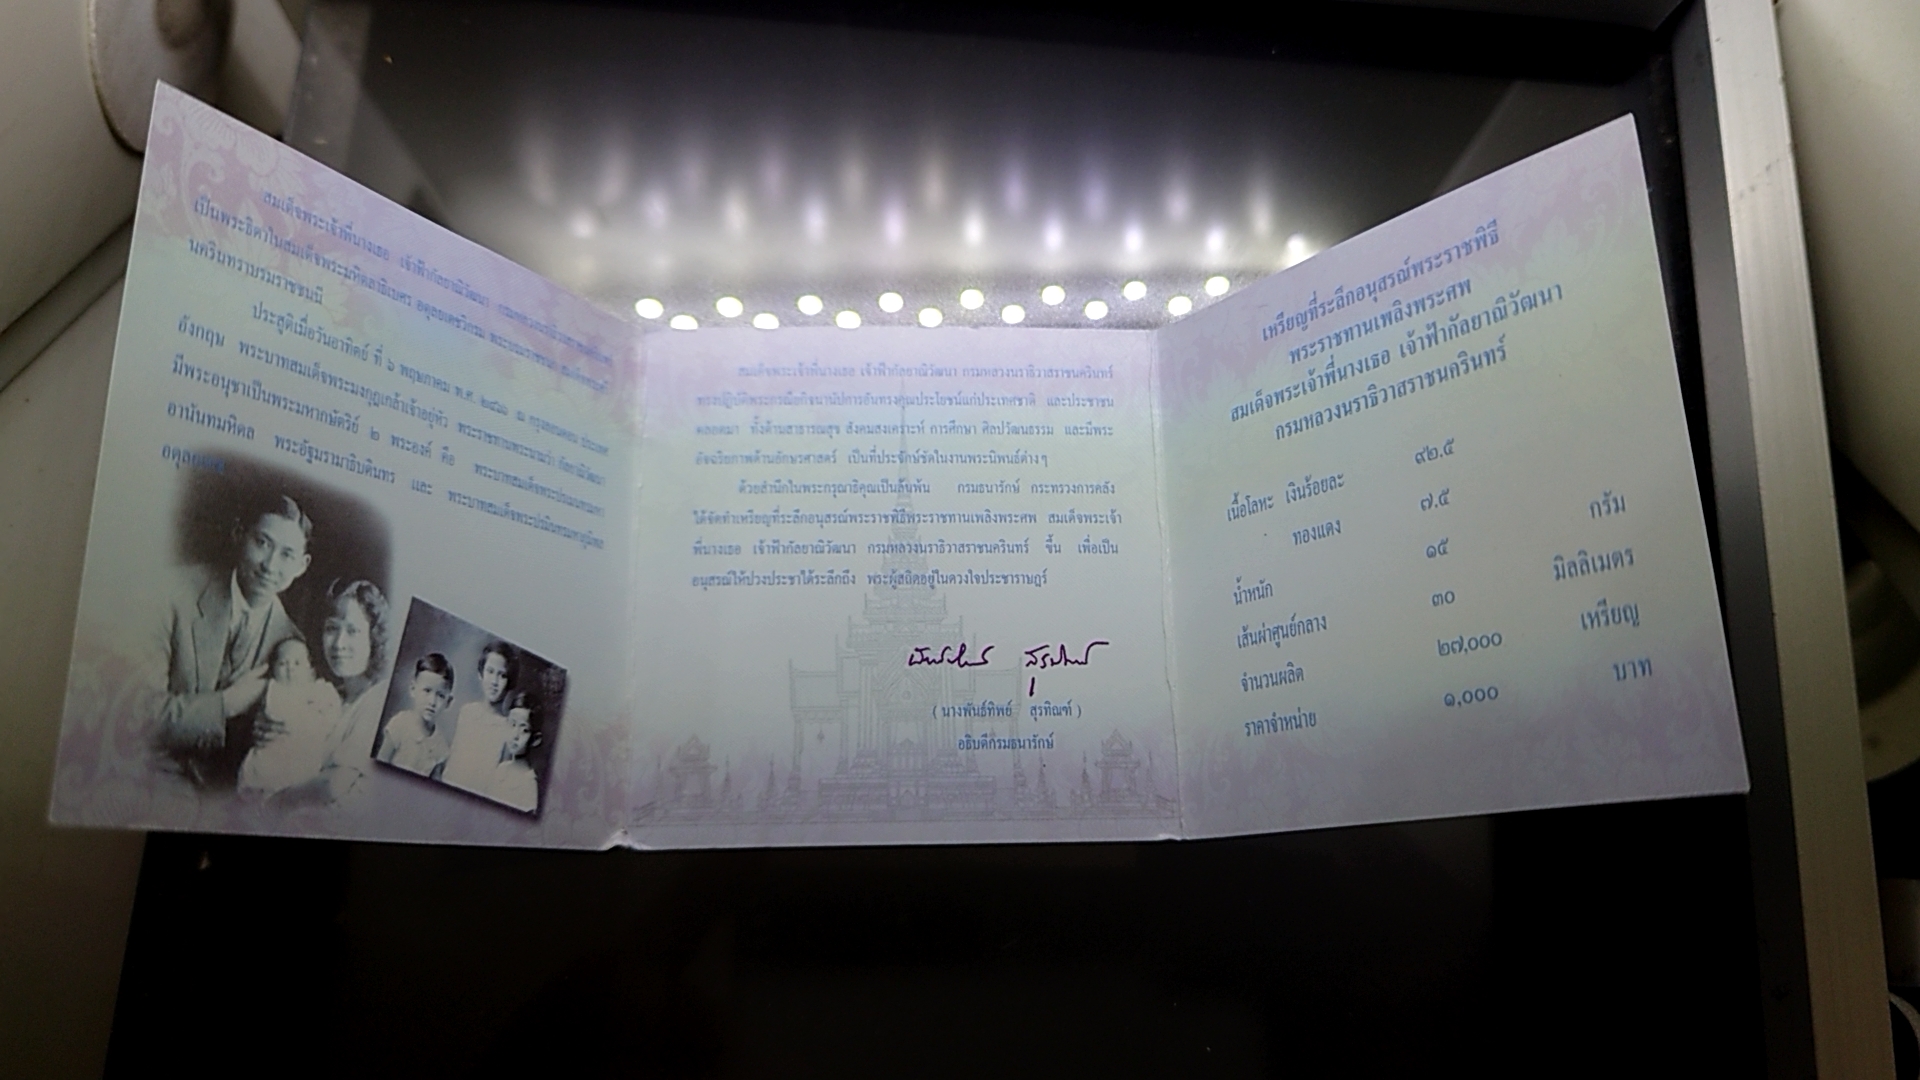 สมเด็จพระเจ้าพี่นางเธอ เจ้าฟ้ากัลยาณิวัฒนา กรมหลวงนราธิวาสราชนครินทร์
เป็นพระธิดาในสมเด็จพระมหิตลาธิเบศร อดุลยเดชวิกรม พระบรมราชชนก สมเด็จพระศรี
นครินทราบรมราชชนนี
ประสูติเมื่อวันอาทิตย์ ที่ ๖ พฤษภาคม พ.ศ. ๒๔๖๖ ณ กรุงลอนดอน ประเทศ
อังกฤษ พระบาทสมเด็จพระมงกุฎเกล้าเจ้าอยู่หัว พระราชทานพระนามว่า กัลยาณิวัฒนา
มีพระอนุชาเป็นพระมหากษัตริย์ ๒ พระองค์ คือ พระบาทสมเด็จพระปรเมนทรมหา
อานันทมหิดล พระอัฐมรามาธิบดินทร และ พระบาทสมเด็จพระปรมินทรมหาภูมิพล
อดุลยเดช
สมเด็จพระเจ้าพี่นางเธอ เจ้าฟ้ากัลยาณิวัฒนา กรมหลวงนราธิวาสราชนครินทร์
ทรงปฏิบัติพระกรณียกิจนานัปการอันทรงคุณประโยชน์แก่ประเทศชาติ และประชาชน
ตลอดมา ทั้งด้านสาธารณสุข สังคมสงเคราะห์ การศึกษา ศิลปวัฒนธรรม และมีพระ
อัจฉริยภาพด้านอักษรศาสตร์ เป็นที่ประจักษ์ชัดในงานพระนิพนธ์ต่างๆ
ด้วยสำนึกในพระกรุณาธิคุณเป็นล้นพ้น กรมธนารักษ์ กระทรวงการคลัง
ได้จัดทำเหรียญที่ระลึกอนุสรณ์พระราชพิธีพระราชทานเพลิงพระศพ สมเด็จพระเจ้า
พี่นางเธอ เจ้าฟ้ากัลยาณิวัฒนา กรมหลวงนราธิวาสราชนครินทร์ ขึ้น เพื่อเป็น
อนุสรณ์ให้ปวงประชาได้ระลึกถึง พระผู้สถิตอยู่ในดวงใจประชาราษฎร์
(นางพันธ์ทิพย์ สุรทิณฑ์)
อธิบดีกรมธนารักษ์
เหรียญที่ระลึกอนุสรณ์พระราชพิธี
พระราชทานเพลิงพระศพ
สมเด็จพระเจ้าพี่นางเธอ เจ้าฟ้ากัลยาณิวัฒนา
กรมหลวงนราธิวาสราชนครินทร์
เนื้อโลหะ เงินร้อยละ ๙๒.๕
ทองแดง ๗.๕
น้ำหนัก ๑๕ กรัม
เส้นผ่าศูนย์กลาง ๓๐ มิลลิเมตร
จำนวนผลิต ๒๗,๐๐๐ เหรียญ
ราคาจำหน่าย ๑,๐๐๐ บาท